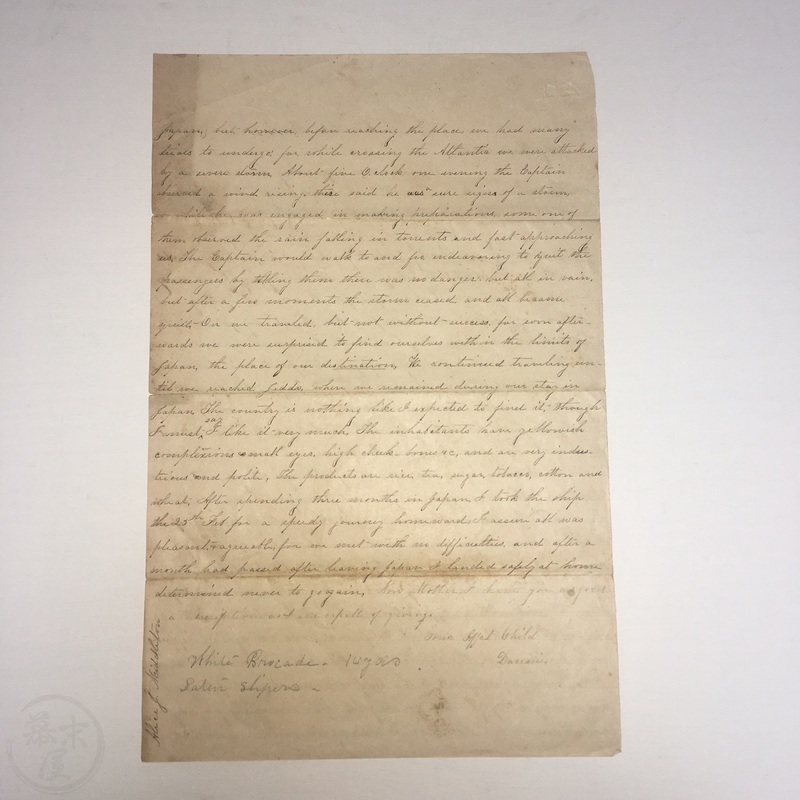 Japan; but however before reaching the place we had many
trials to undergo; for while crossing the Altantic we were attacked
by a severe storm. About five O.clock one evening the Captain
observed a wind rising. this said he was sure signs of a storm,
while he was engaged in making preparations, some one of
them observed the rain falling in torrents and fast approaching
us. The Captain would walk to and fro endeavoring to quit the
passengers by telling them there was no danger but all in vain,
but after a few moments the storm ceased and all became
quiet. On we traveled, but not without success, for soon after-
wards we were surprised to find ourselves within the limits of
Japan, the place of our destination, We continued traveling un-
til we reached Jeddo, where we remained during our stay in
Japan The country is nothing like I expected to find it, though
I must say I like it very much. The inhabitants have yellowish
complexions small eyes, high cheek bones &c, and are very indus-
trious and polite, The products are rice, tea, sugar, tobacco, cotton and
wheat, After spending three months in Japan I took the ship
the 25th Feb for a speedy journey homeward. I assure all was
pleasant & agreeable, for we met with no difficulties, and after a
month had passed after leaving Japan I landed safely at home
determined never to go again, Now Mother I have you a good
a description as I am capable of giving.
Your Affet Child
White Brocade. 14 yds.
Saten Slipers
Alice J. Middleton
幕末屋